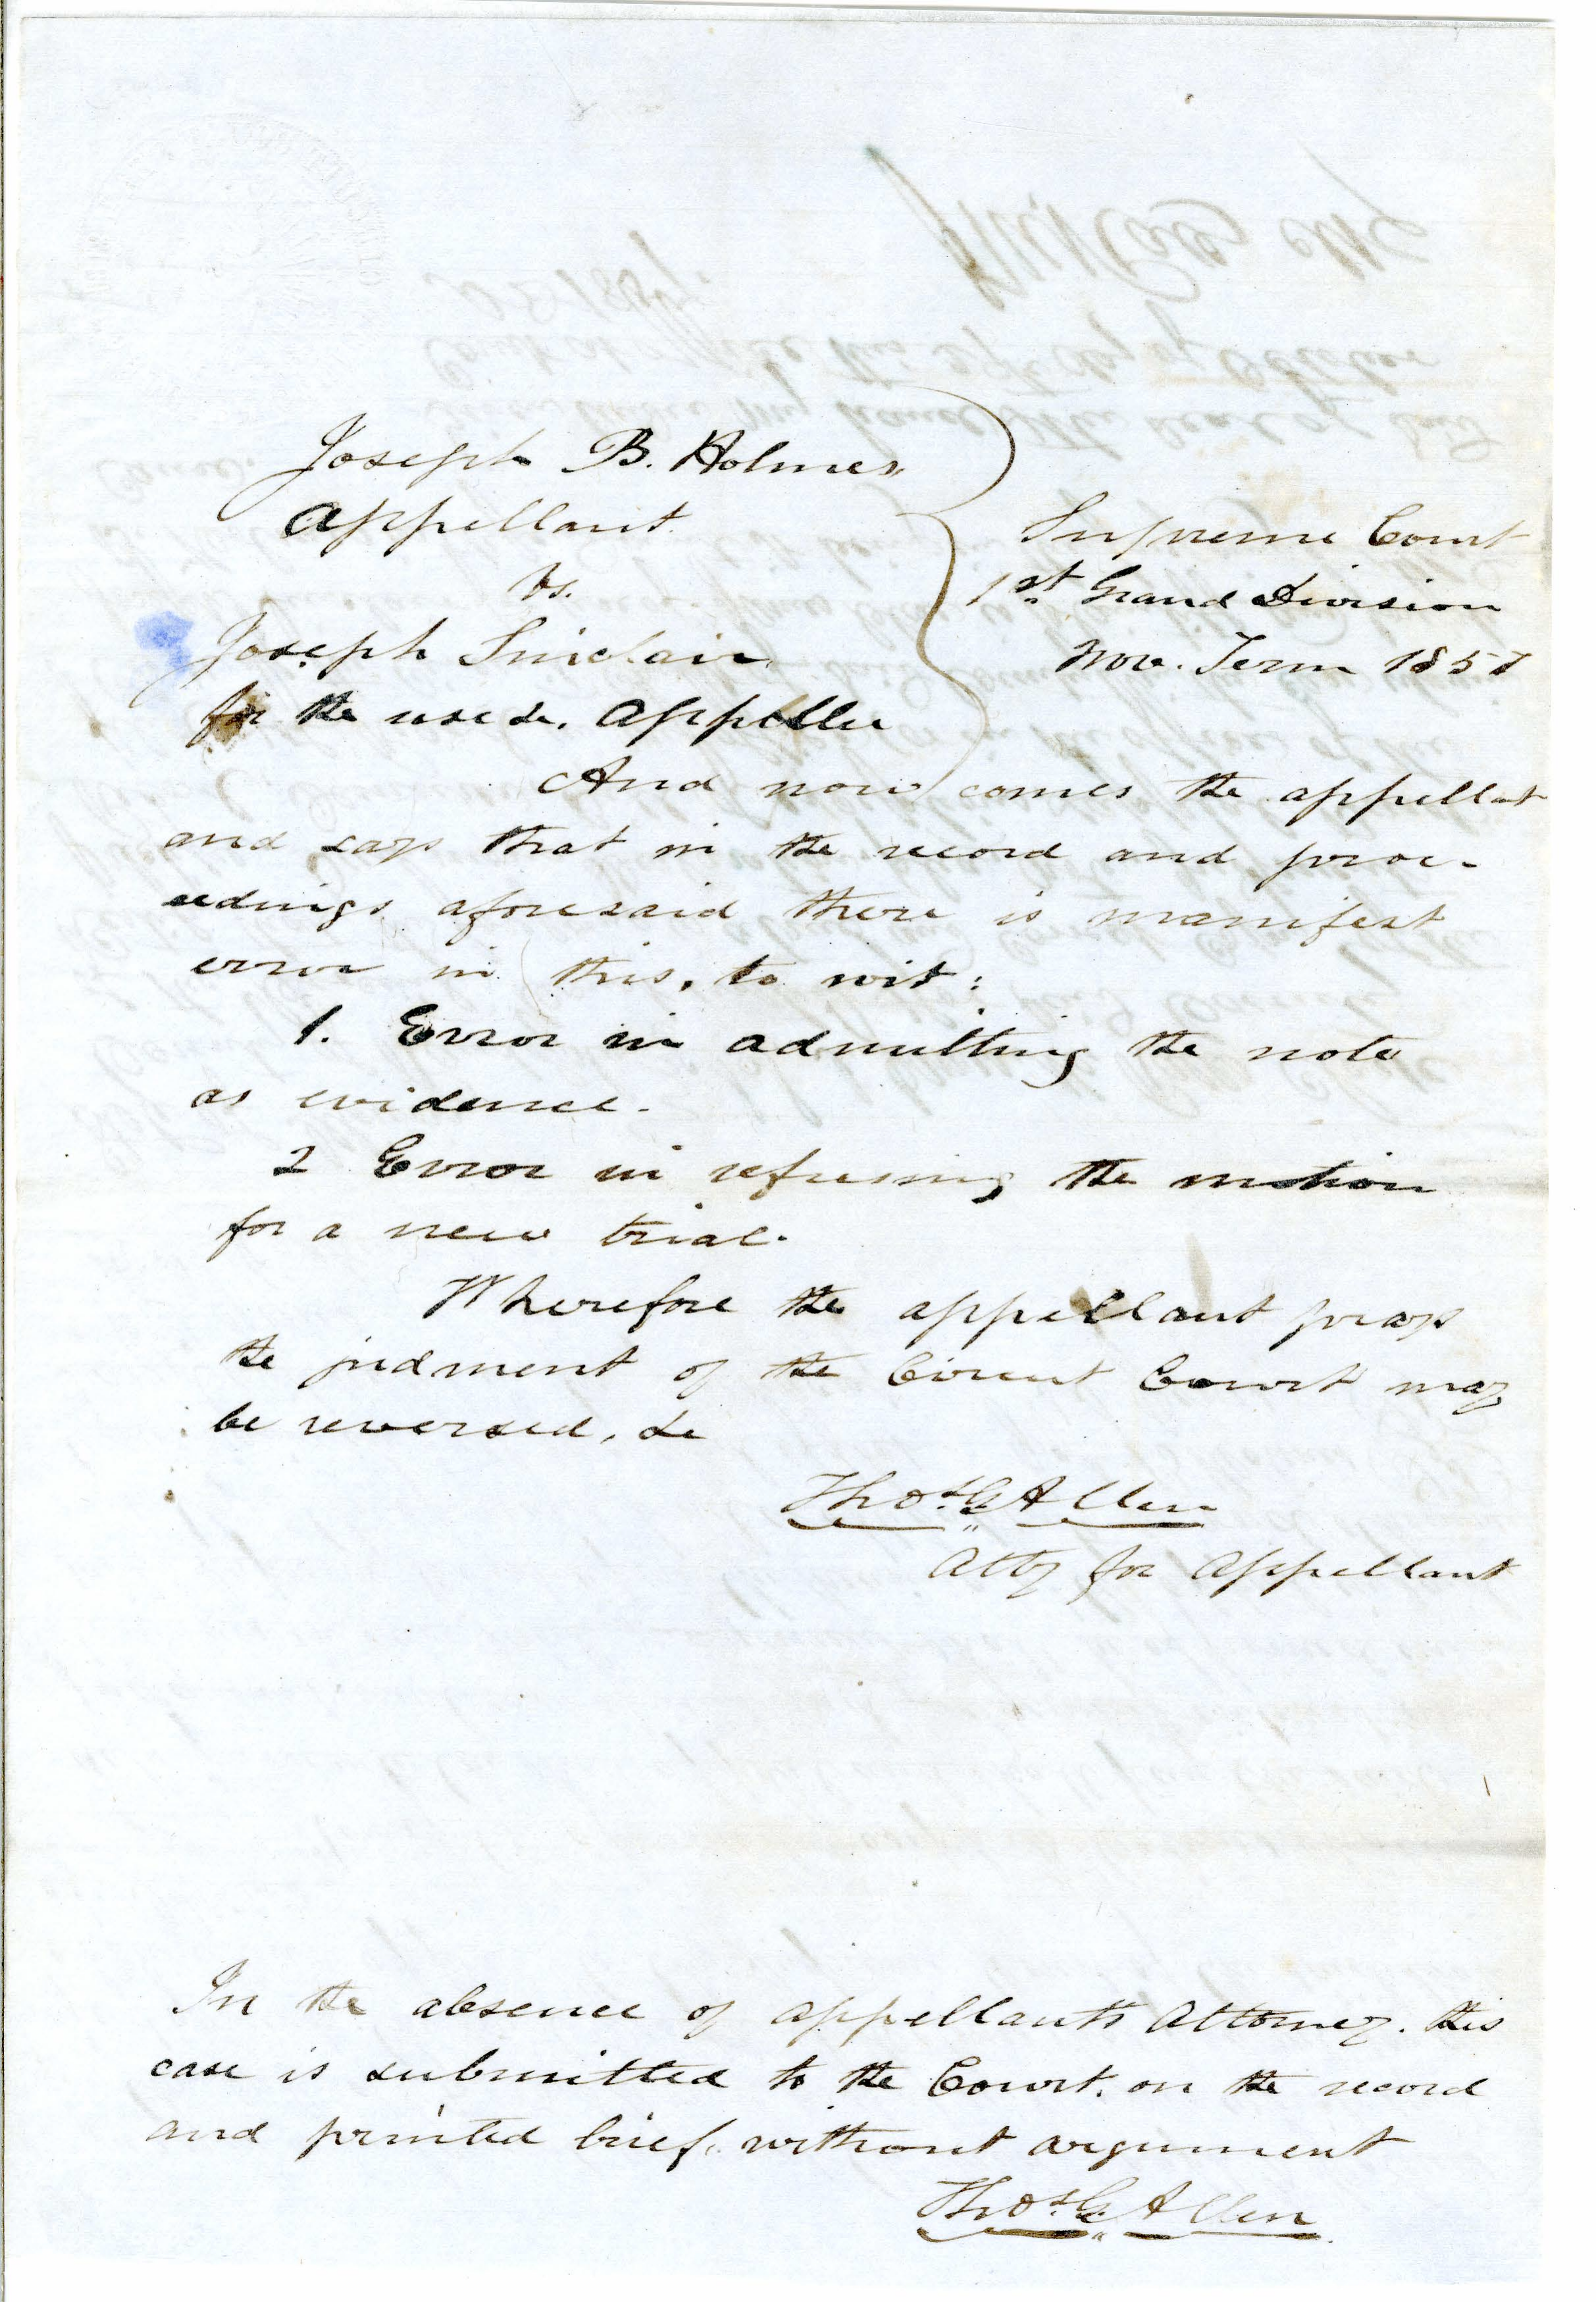 Joseph B. Holmes
Appellant
vs.
Joseph Sinclair,
for the use &c. Appellee
Supreme Court
1st. Grand Division
Nov. Term 1857
And now comes the appellant
and says that in the record and proc-
eedings aforesaid there is manifest
error in this, to wit:
1. Error in admitting the note
as evidence.
2 Error in refusing the motion
for a new trial.
Wherefore the appellant prays
the judment of the Circuit Court may
be reversed, &c
Thos. G. Allen
Atty for Appellant
In the absence of appellant's Attorney. this
case is submitted to the Court. on the record
and printed brief, without argument
Thos. G. Allen